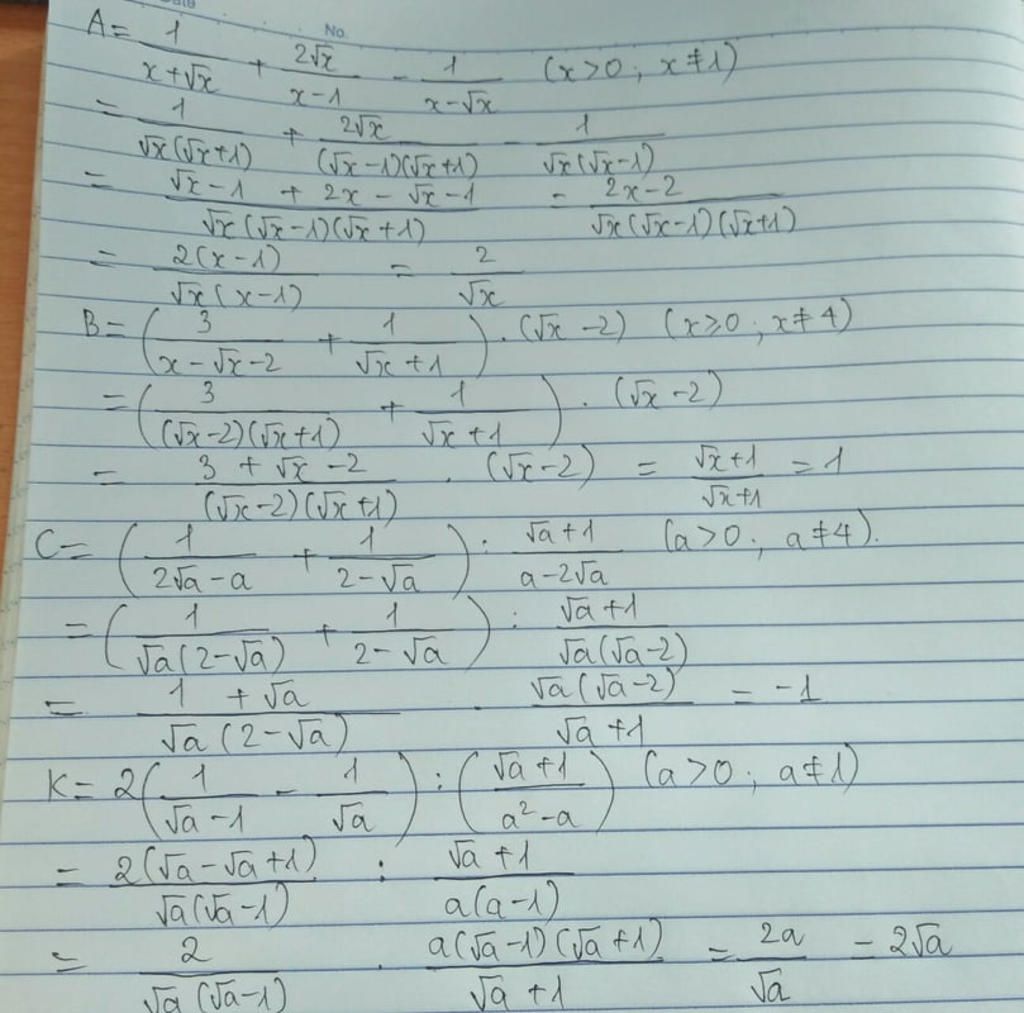 No.
A = 1/(x+√x) + 2√x/(x-1) - 1/(x-√x) (x>0; x≠1)
= 1/(√x(√x+1)) + 2√x/((√x-1)(√x+1)) - 1/(√x(√x-1))
= (√x-1 + 2x - √x-1)/(√x(√x-1)(√x+1)) = (2x-2)/(√x(√x-1)(√x+1))
= 2(x-1)/(√x(x-1)) = 2/√x
B = (3/(x-√x-2) + 1/(√x+1)) . (√x-2) (x≥0; x≠4)
= (3/((√x-2)(√x+1)) + 1/(√x+1)) . (√x-2)
= (3+√x-2)/((√x-2)(√x+1)) . (√x-2) = (√x+1)/(√x+1) = 1
C = (1/(2√a-a) + 1/(2-√a)) : (√a+1)/(a-2√a) (a>0; a≠4).
= (1/(√a(2-√a)) + 1/(2-√a)) : (√a+1)/(√a(√a-2))
= (1+√a)/(√a(2-√a)) . √a(√a-2)/(√a+1) = -1
K = 2(1/(√a-1) - 1/√a) : ((√a+1)/(a²-a)) (a>0; a≠1)
= 2(√a-√a+1)/(√a(√a-1)) : (√a+1)/(a(a-1))
= 2/(√a(√a-1)) . a(√a-1)(√a+1)/(√a+1) = 2a/√a = 2√a